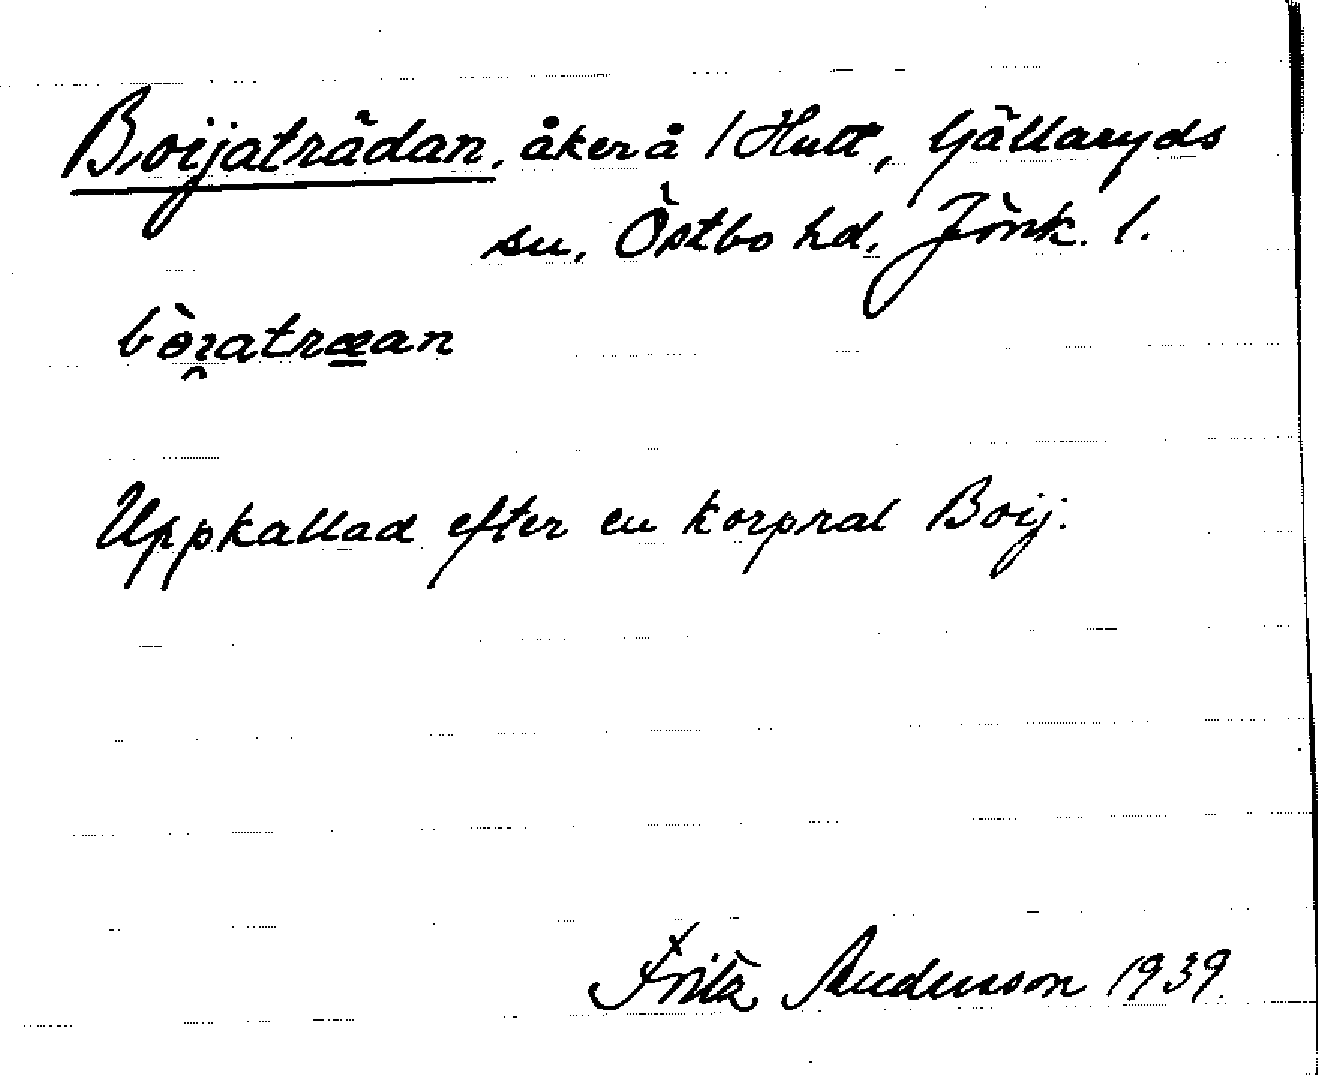 Boijaträdan, åker å 1 Hult, Gällaryds
sn, Östbo hd, Jönk. l.
Uppkallad efter en korpral Boij.
Fritz Andersson 1939.